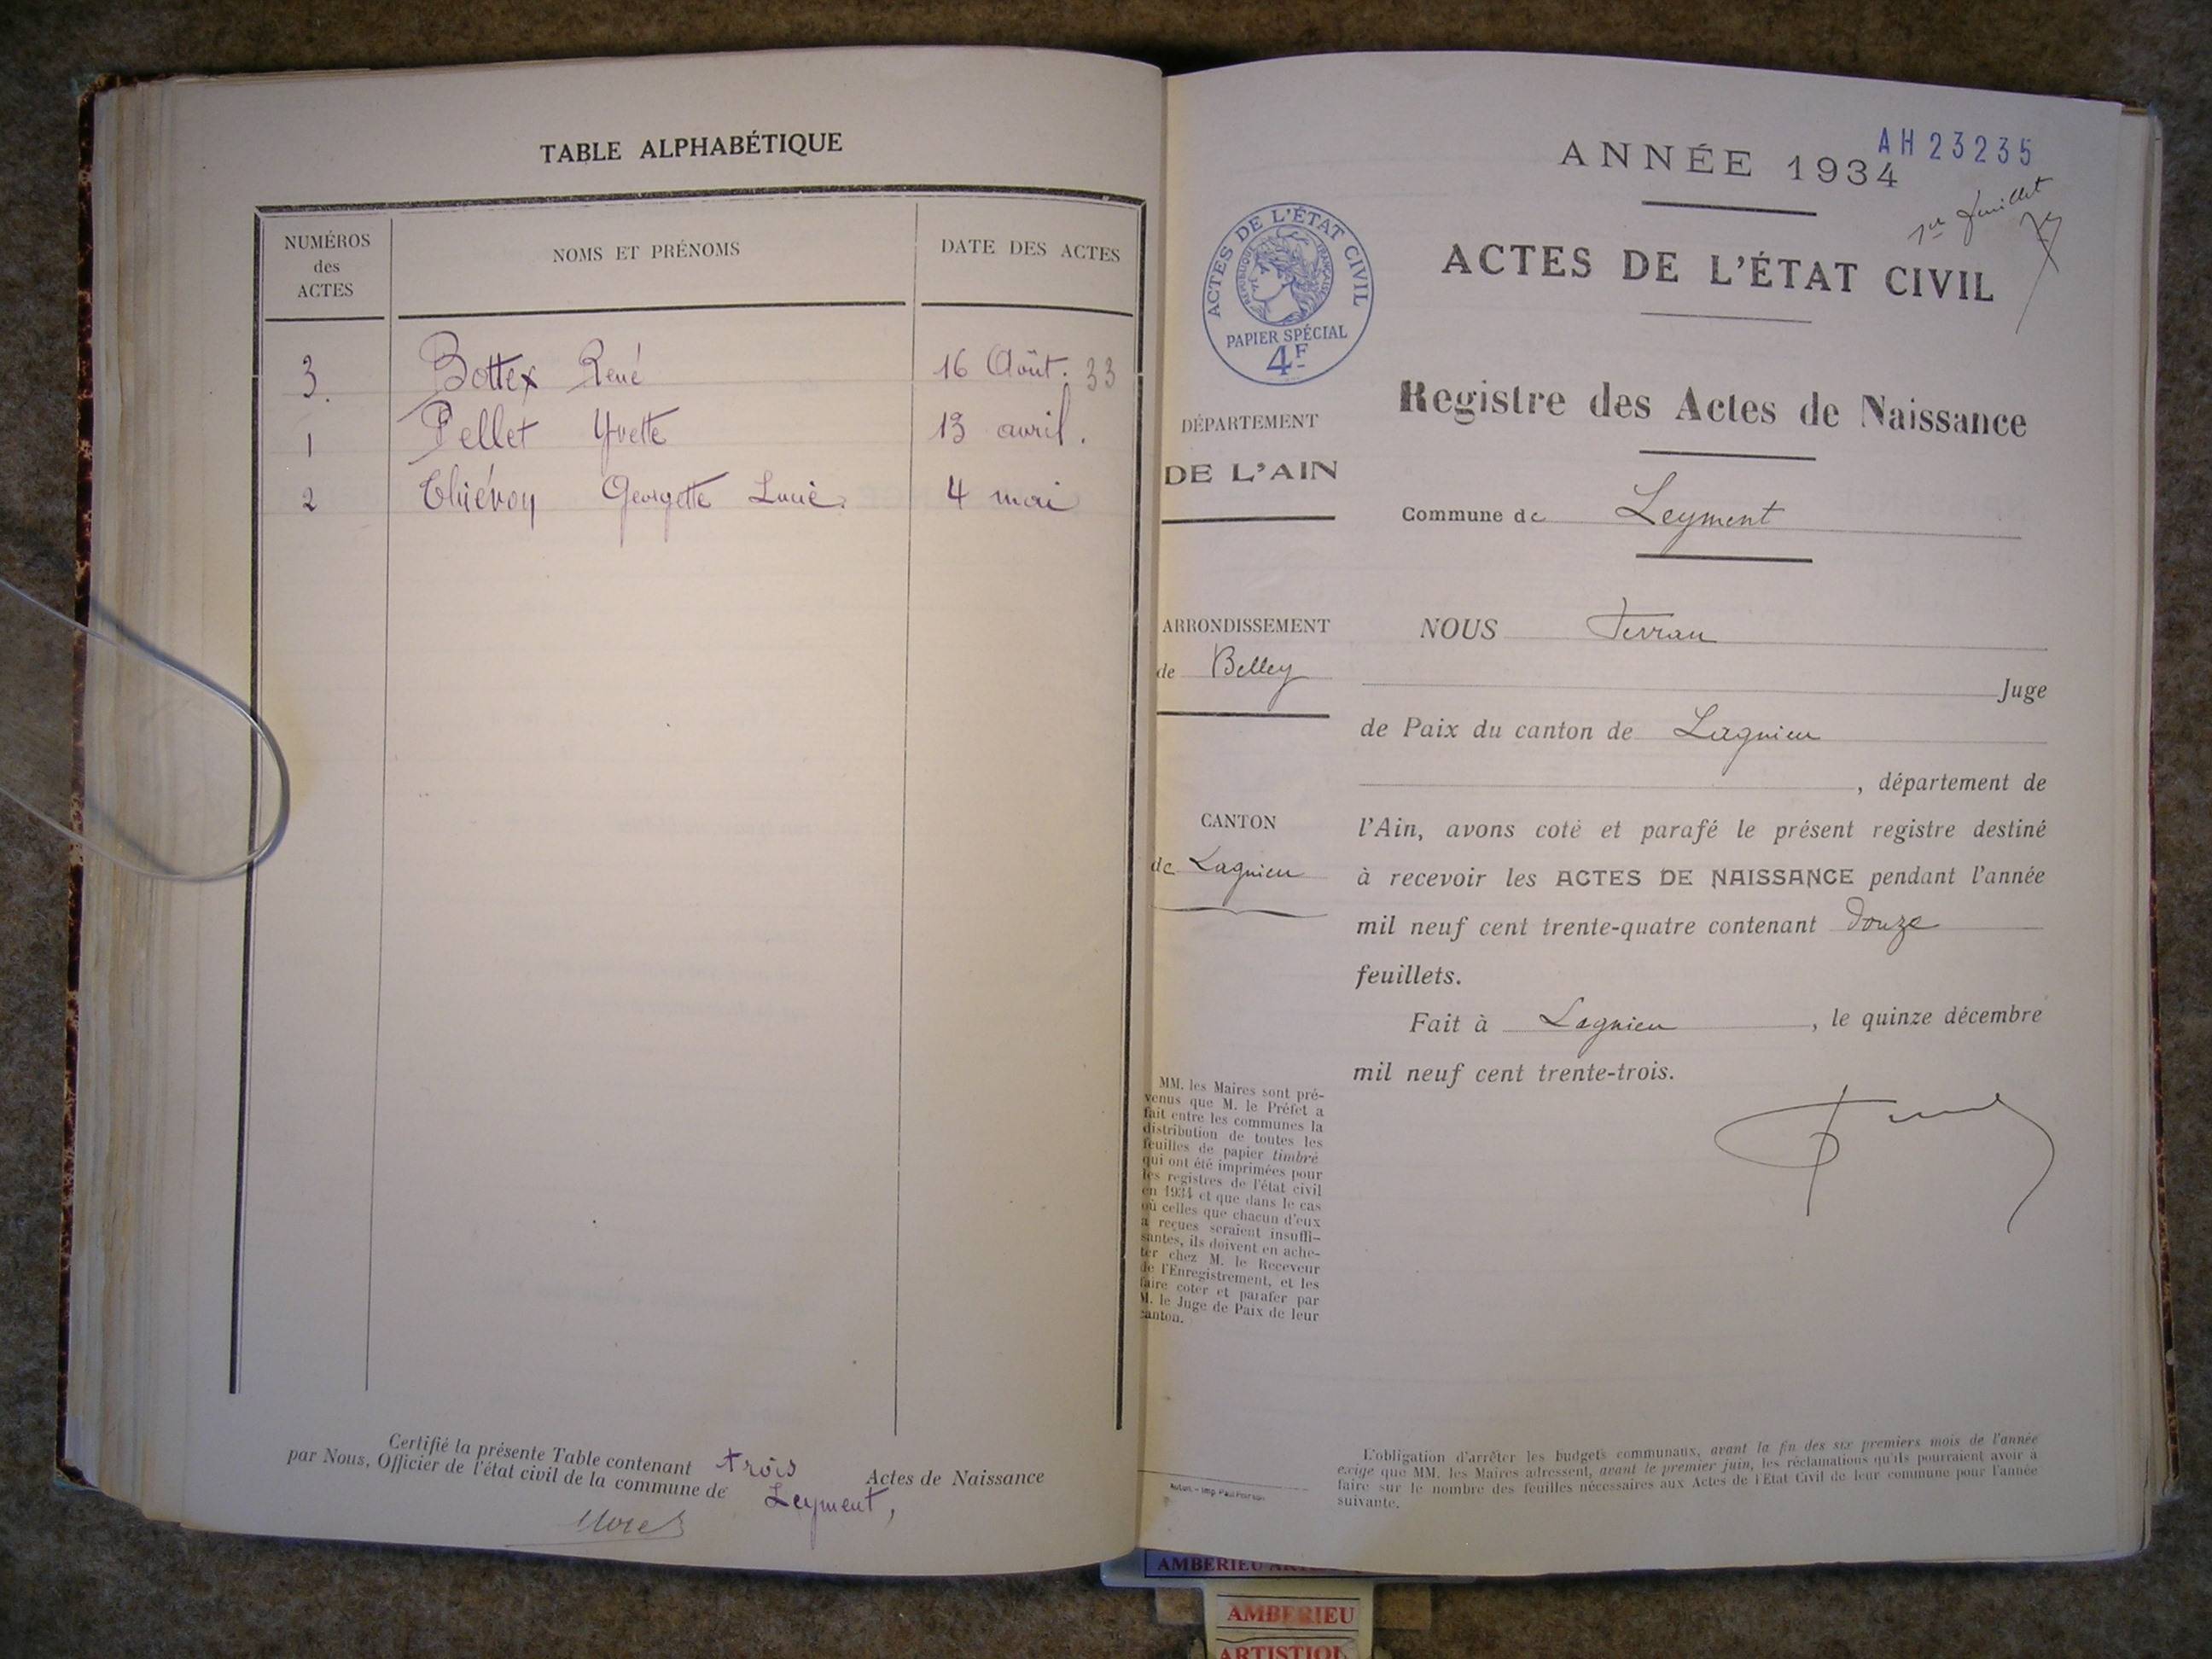 TABLE ALPHABÉTIQUE
NUMÉROS
des
ACTES
NOMS ET PRÉNOMS
DATE DES ACTES
3. Bottex René 16 Août. 33
1 Pellet Yvette 13 avril.
2 Thiévoy Georgette Lucie. 4 mai
Certifié la présente Table contenant trois Actes de Naissance
par Nous, Officier de l'état civil de la commune de Leyment,
Morel
ANNÉE 1934
AH 23235
1er feuillet
ACTES DE L'ÉTAT CIVIL
RÉPUBLIQUE FRANÇAISE
PAPIER SPÉCIAL
4F
ACTES DE L'ÉTAT CIVIL
Registre des Actes de Naissance
Commune de Leyment
DÉPARTEMENT
DE L'AIN
ARRONDISSEMENT
de Belley
CANTON
de Lagnieu
MM. les Maires sont pré-
venus que M. le Préfet a
fait entre les communes la
distribution de toutes les
feuilles de papier timbré
qui ont été imprimées pour
les registres de l'état civil
en 1934 et que dans le cas
où celles que chacun d'eux
a reçues seraient insuffi-
santes, ils doivent en ache-
ter chez M. le Receveur
de l'Enregistrement, et les
faire coter et parafer par
M. le Juge de Paix de leur
canton.
NOUS Ferran
Juge
de Paix du canton de Lagnieu
, département de
l'Ain, avons coté et parafé le présent registre destiné
à recevoir les ACTES DE NAISSANCE pendant l'année
mil neuf cent trente-quatre contenant douze
feuillets.
Fait à Lagnieu , le quinze décembre
mil neuf cent trente-trois.
L'obligation d'arrêter les budgets communaux, avant la fin des six premiers mois de l'année
exige que MM. les Maires adressent, avant le premier juin, les réclamations qu'ils pourraient avoir à
faire sur le nombre des feuilles nécessaires aux Actes de l'Etat Civil de leur commune pour l'année
suivante.
AMBERIEU
AMBERIEU